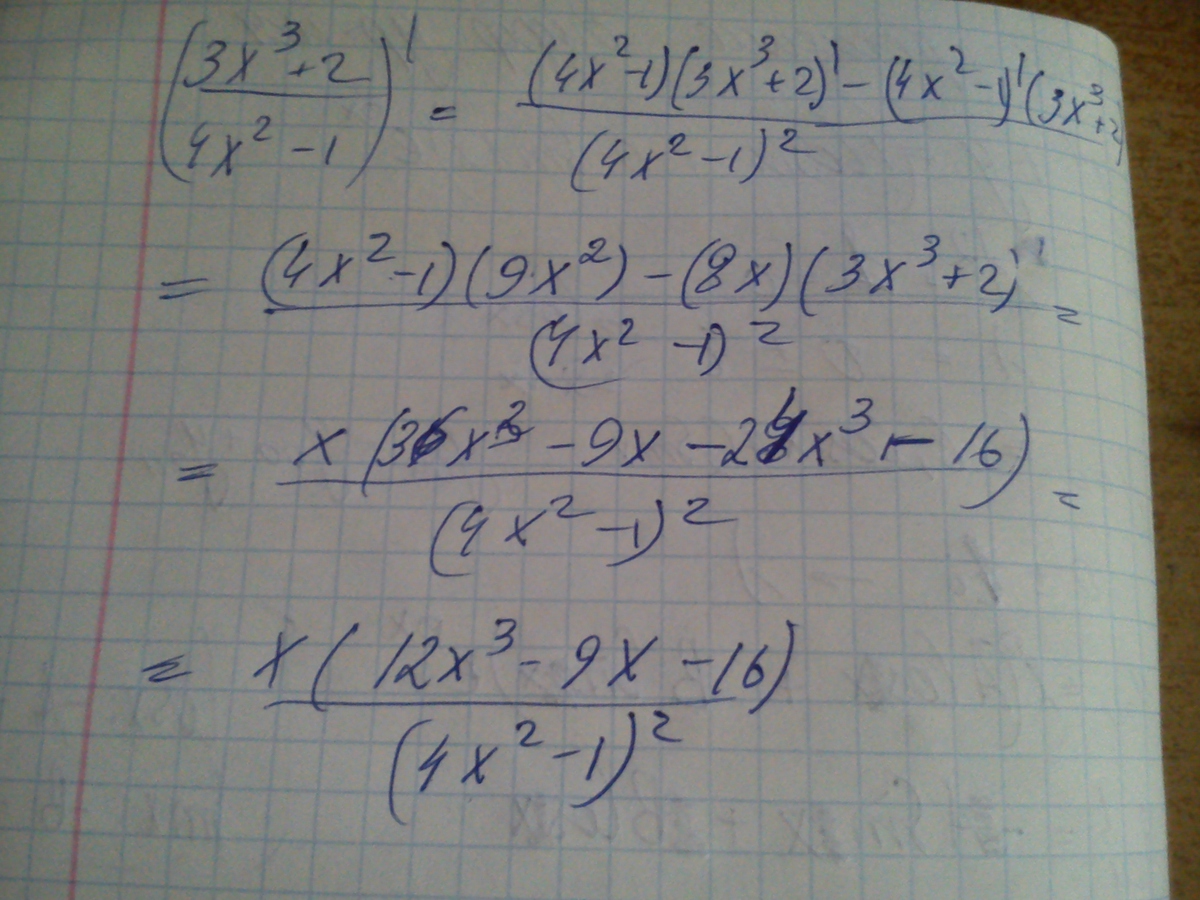 (3x³+2 / 4x² - 1)' = (4x²-1)(3x³+2)' - (4x²-1)'(3x³+2) / (4x²-1)²
= (4x²-1)(9x²) - (8x)(3x³+2) / (4x²-1)² =
= x(36x³ - 9x - 24x³ - 16) / (4x²-1)² =
= x(12x³ - 9x - 16) / (4x²-1)²